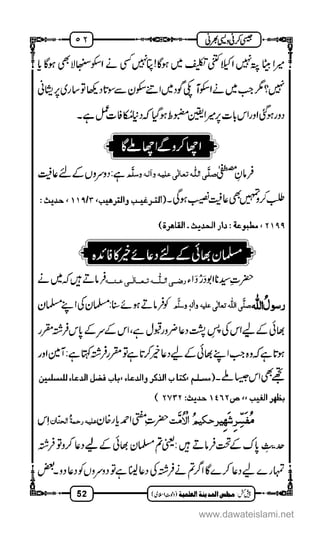 ۵۲ جیسی کرنی ویسی بھرنی
میرا بیٹا پتہ نہیں اکیلا کتنی تکلیف میں ہوگا! اپنا نہیں کسی نے اس کو سنبھالا بھی ہوگا یا
نہیں؟ مگر جب میں اسکی آکر گود میں اتنے سکون سے سوتا دیکھا تو ساری پریشانی
دور ہوگئی اور اس بات پر میرا یقین مضبوط ہوگیا کہ دنیا مکافاتِ عمل ہے۔
اچھا کروگے اچھا ملے گا
فرمانِ مصطفٰی صلَّی اللہ تعالٰی علیہ واٰلہ وسلَّم ہے: دوسروں کے لئے عافیت
طلب کرو تمہیں بھی عافیت نصیب ہوگی۔ (الترغیب والترھیب، ۱۱۹/۳ ، حدیث :
۲۱۹۹ ، مطبوعۃ : دار الحدیث ۔ القاھرۃ)
مسلمان بھائی کے لئے دعائے خیر کا فائدہ
حضرتِ سیدنا ابو دَرداء رضی اللہ تعالٰی عنہ فرماتے ہیں کہ میں نے
رسولُ اللہ صلَّی اللہ تعالٰی علیہ واٰلہٖ وسلَّم کو فرماتے ہوئے سنا: مسلمان کی اپنے مسلمان
بھائی کے لیے پسِ پشت دعا ضرور قبول ہوتی ہے، اس کے سر کے پاس فرشتہ مقرر
ہوتا ہے کہ جب وہ اپنے بھائی کے لیے دعائے خیر کرتا ہے تو مقرر فرشتہ کہتا ہے: آمین اور
تجھے بھی اس جیسا ملے۔ (مسلم ،کتاب الذکر والدعاء ،باب فضل الدعاء للمسلمین
بظھر الغیب ،، ص۱۴۶۲ حدیث: ۲۷۳۲ )
مُفَسِّرِ شَہِیر حکیمُ الْاُمَّت حضرتِ مفتی احمد یار خان علیہ رحمۃُ الحنّان اِس
حدیثِ پاک کے تحت فرماتے ہیں: یعنی: تم مسلمان بھائی کے لیے دعا کرو تو فرشتہ
تمہارے لیے دعا کرے گا اگر تم نے فرشتہ کی دعا لینی ہے تو دوسروں کو دعا دو۔ بعض
52 پیش کش: مجلس المدینۃ العلمیۃ (دعوتِ اسلامی)
www.dawateislami.net